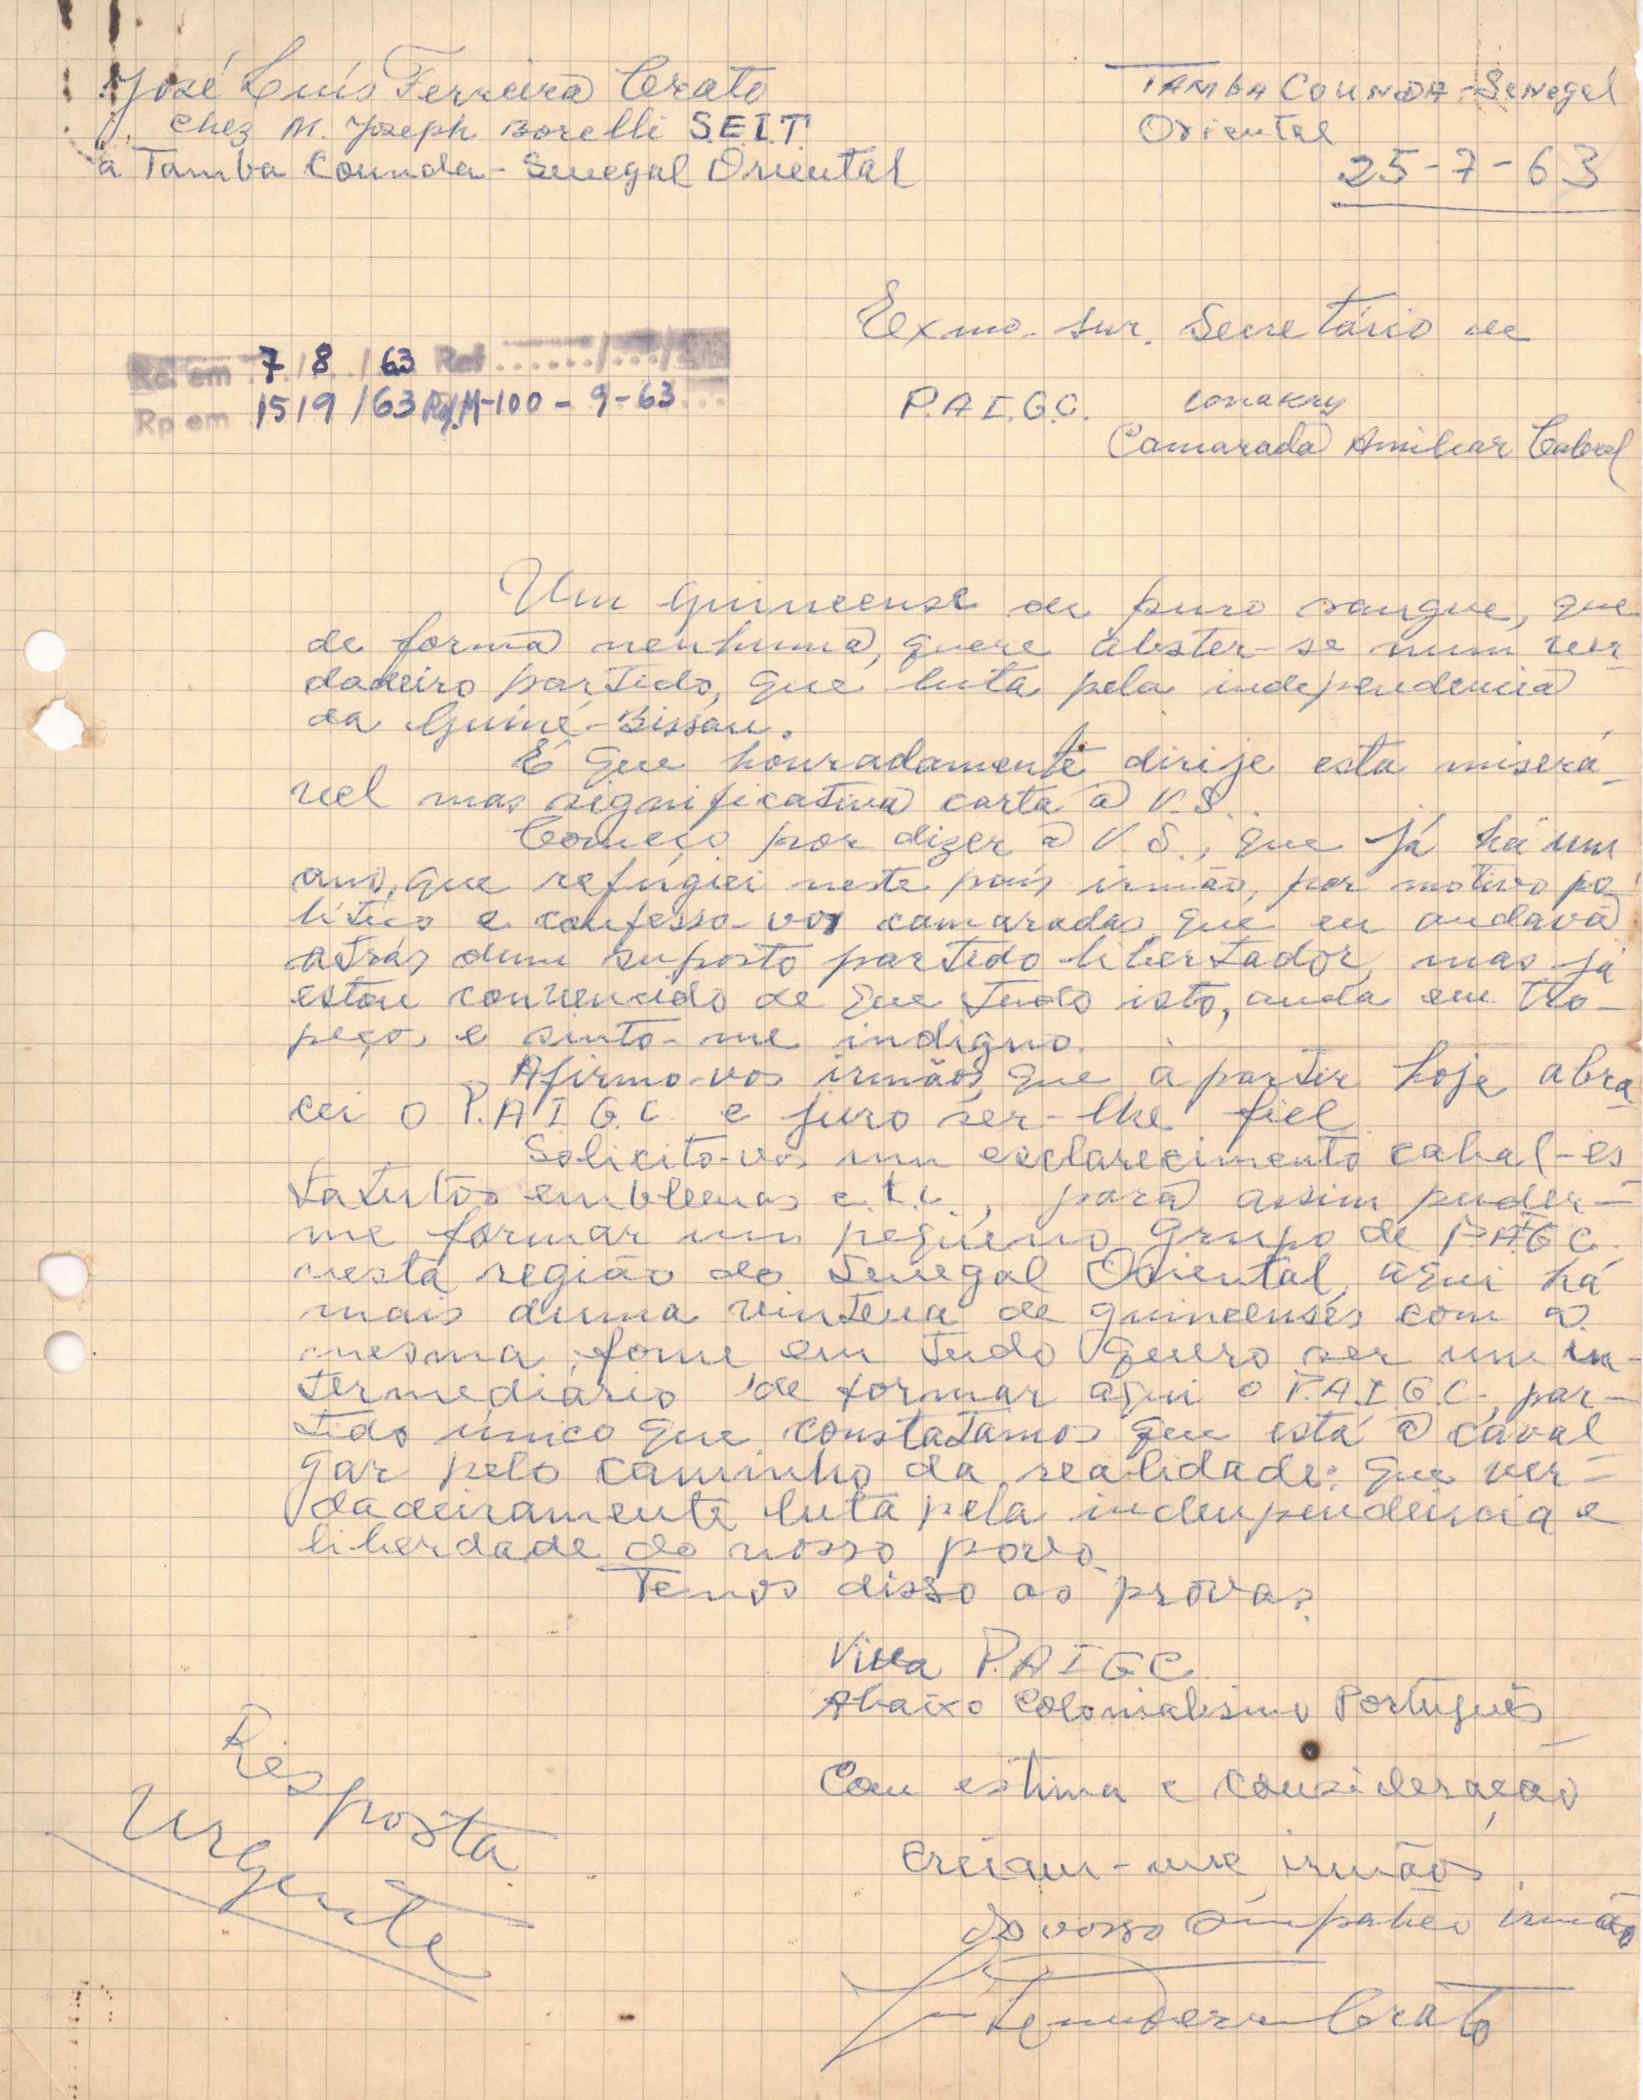 José Luís Ferreira Crato
chez M. Joseph Borelli S.E.I.T.
a Tamba Counda - Senegal Oriental
TAMBA COUNDA - Senegal
Oriental
25-7-63
Exmo. snr. Secretário de
P.A.I.G.C. Conakry
Camarada Amilcar Cabral
Rc. em 7/8/63 Ref ....../.../...
Rp em 15/9/63 Ref. M-100-9-63
Um guineense de puro sangue, que
de forma nenhuma, quere abster-se num ver-
dadeiro partido, que luta pela independencia
da Guiné-Bissau.
É que honradamente dirije esta miserá-
vel mas significativa carta a V.S.
Começo por dizer a V.S., que já há um
ano, que refúgiei neste país irmão, por motivo po-
lítico e confesso-vos camaradas que eu andava
atrás dum suposto partido libertador, mas já
estou convencido de que tudo isto, anda em tro-
peços e sinto-me indigno.
Afirmo-vos irmãos que à partir hoje abra-
cei o P.A.I.G.C. e juro ser-lhe fiel.
Solicito-vos um esclarecimento cabal-es
tatutos emblemas e.t.c., para assim puder-
me formar um pequeno grupo de P.A.I.G.C.
nesta região do Senegal Oriental, aqui há
mais duma vintena de guineenses com a
mesma fome em tudo quero ser um in-
termediário de formar aqui o P.A.I.G.C., par-
tido único que constatamos que está a caval
gar pelo caminho da realidade: que ver-
dadeiramente luta pela independencia e
liberdade do nosso povo
Temos disso as provas.
Viva P.A.I.G.C.
Abaixo Colonialismo Português
Com estima e consideração
creiam-me irmãos
do vosso simpatico irmão
Crato
Resposta
Urgente